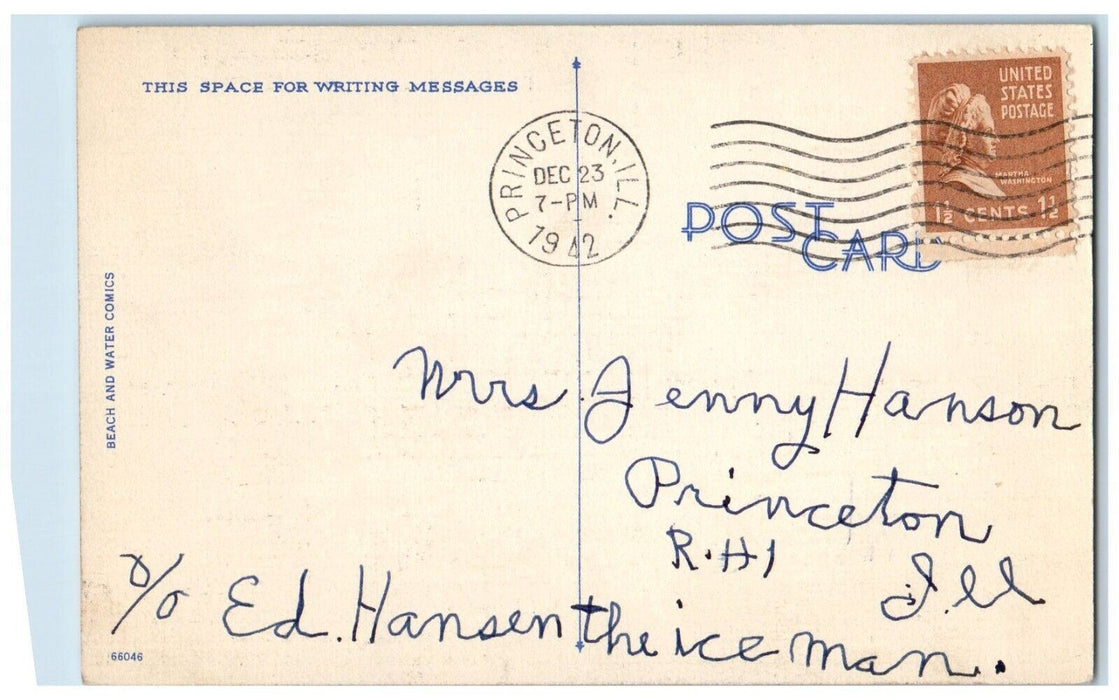 THIS SPACE FOR WRITING MESSAGES
PRINCETON, ILL.
DEC 23
7-PM
1942
UNITED
STATES
POSTAGE
MARTHA
WASHINGTON
1½ CENTS 1½
POST
CARD
BEACH AND WATER COMICS
Mrs Jenny Hanson
Princeton
R.#1
Ill
c/o Ed. Hansen the ice man.
66046